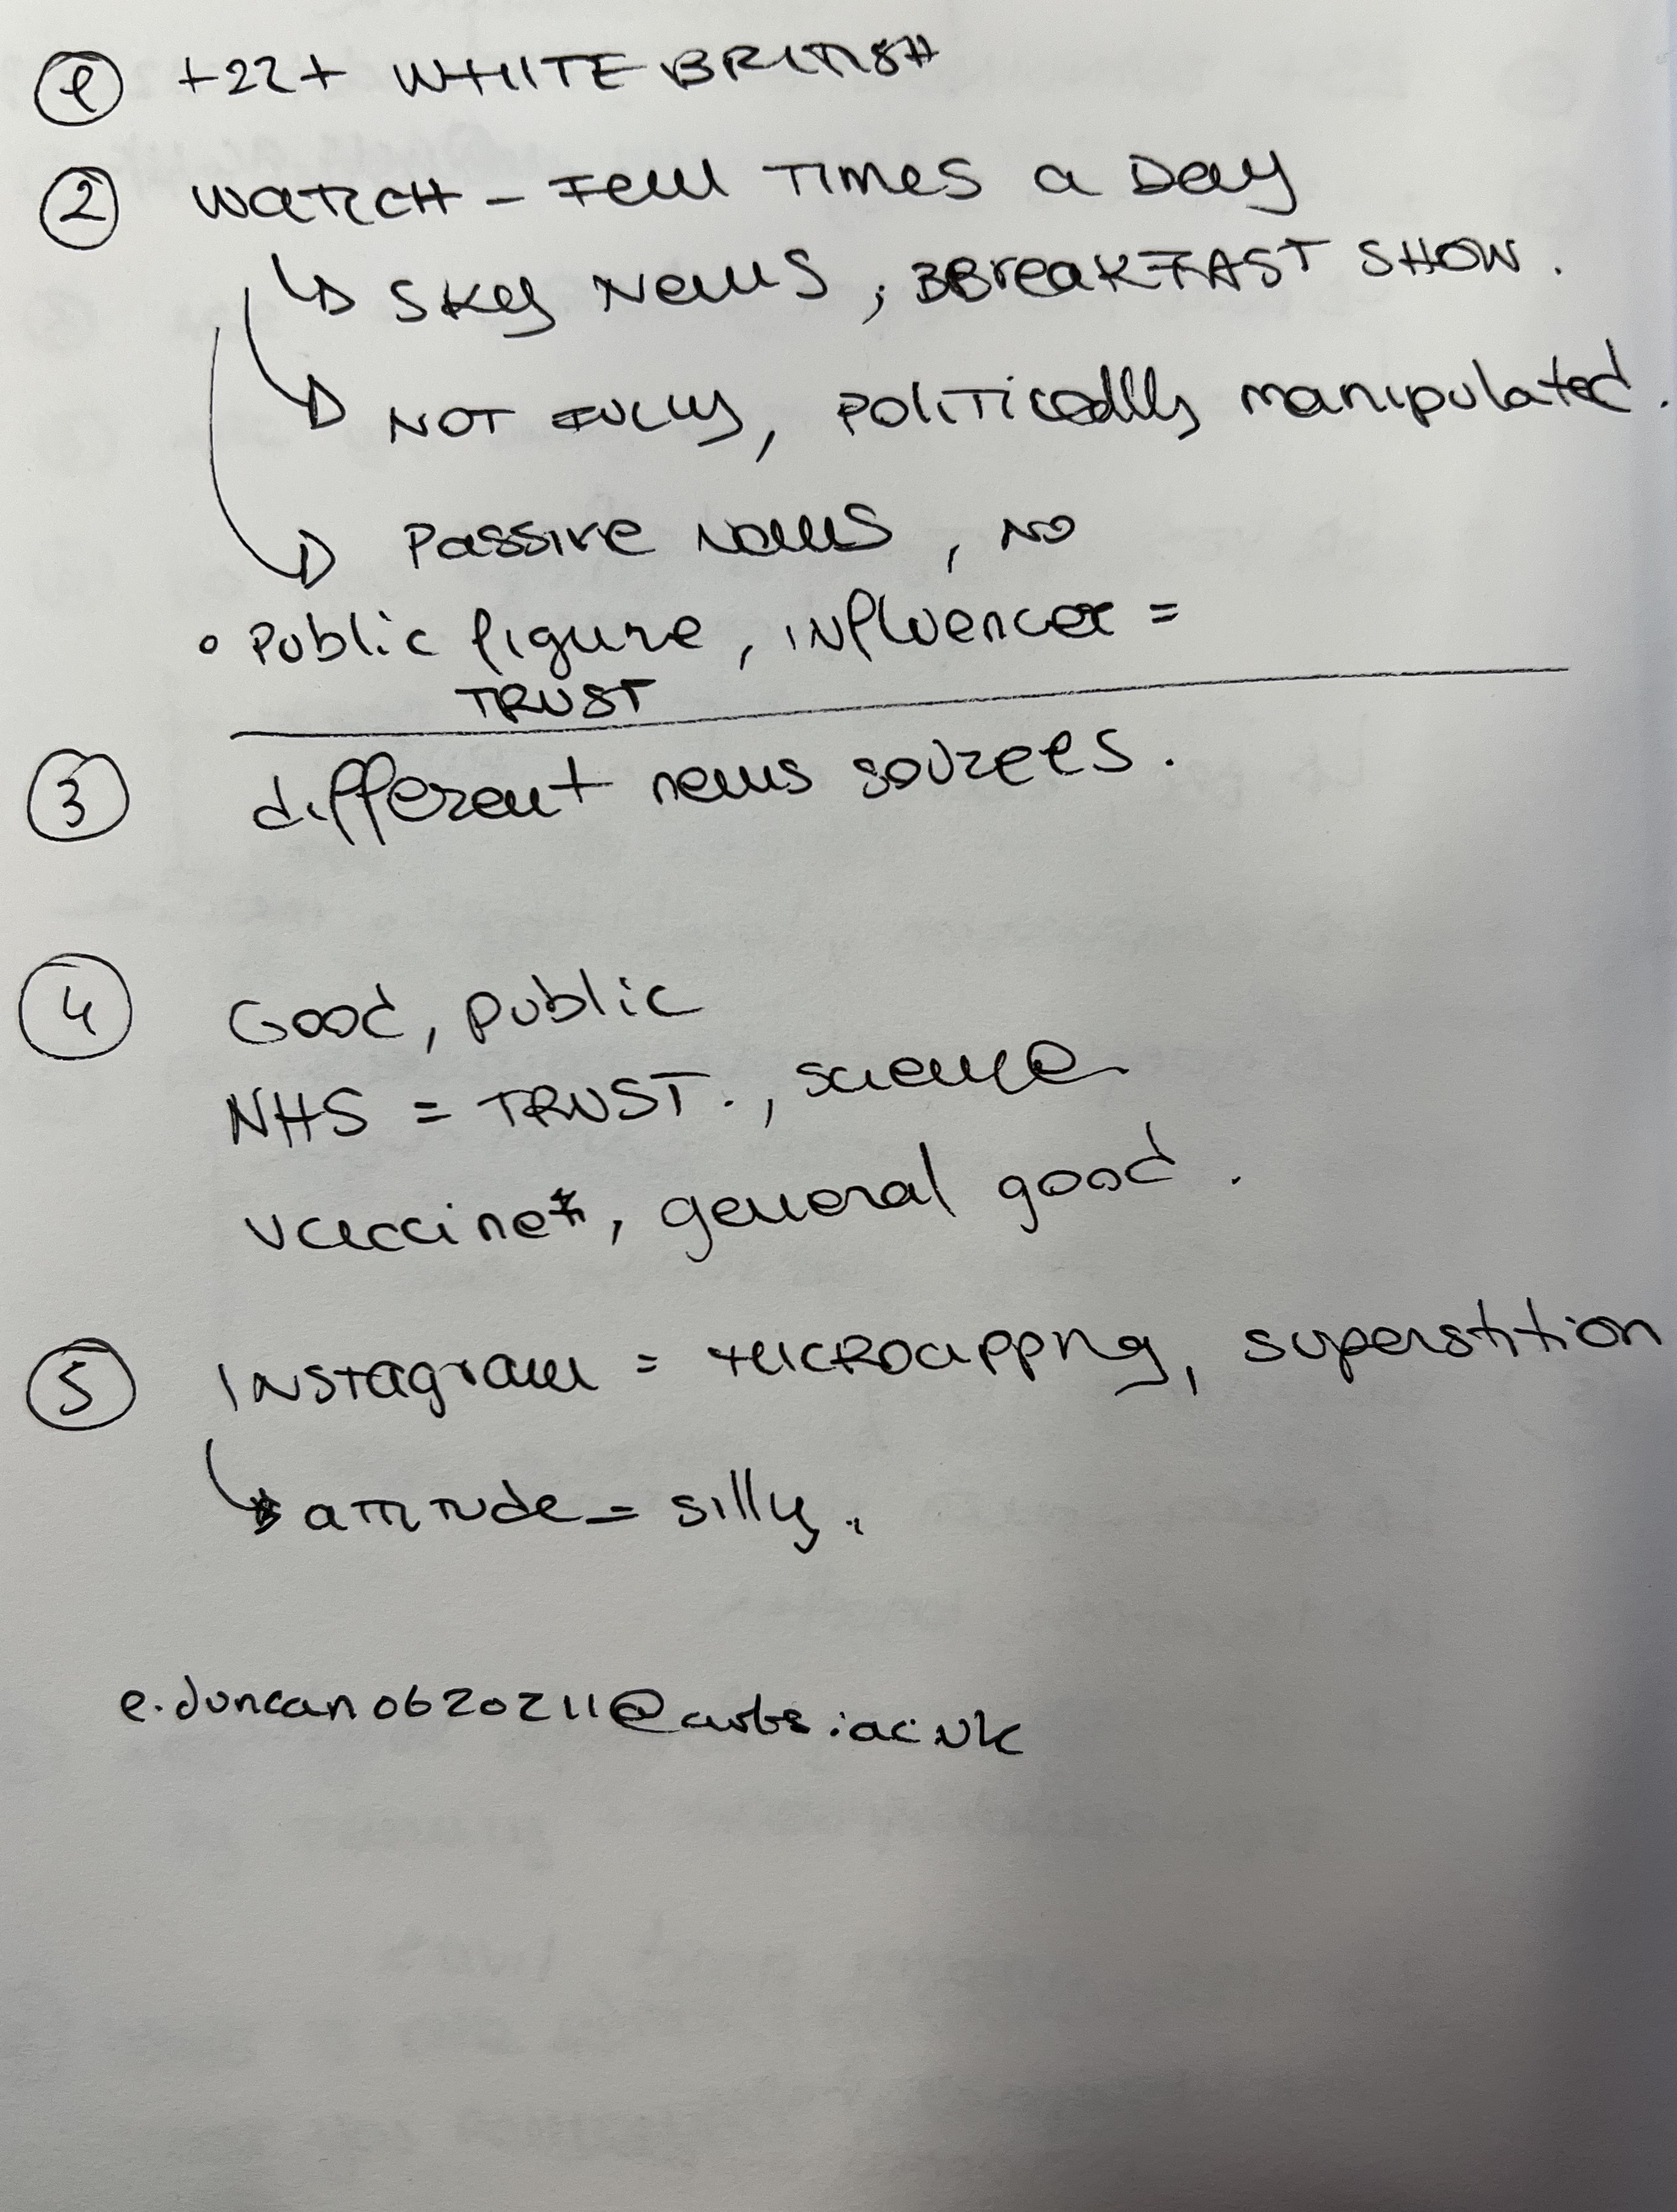 ① +22+ WHITE BRITISH
② WATCH - FEW TIMES a Day
↳ SKY News, BBreakFAST SHOW.
↳ NOT FULLY, politically manipulated.
↳ Passive news, NO
• Public figure, influencer =
TRUST
③ different news sources.
④ Good, public
NHS = TRUST., science
vaccine, general good.
⑤ INSTAGRAM = superstition
↳ attitude = silly.
e.duncan0620211@ .ac.uk